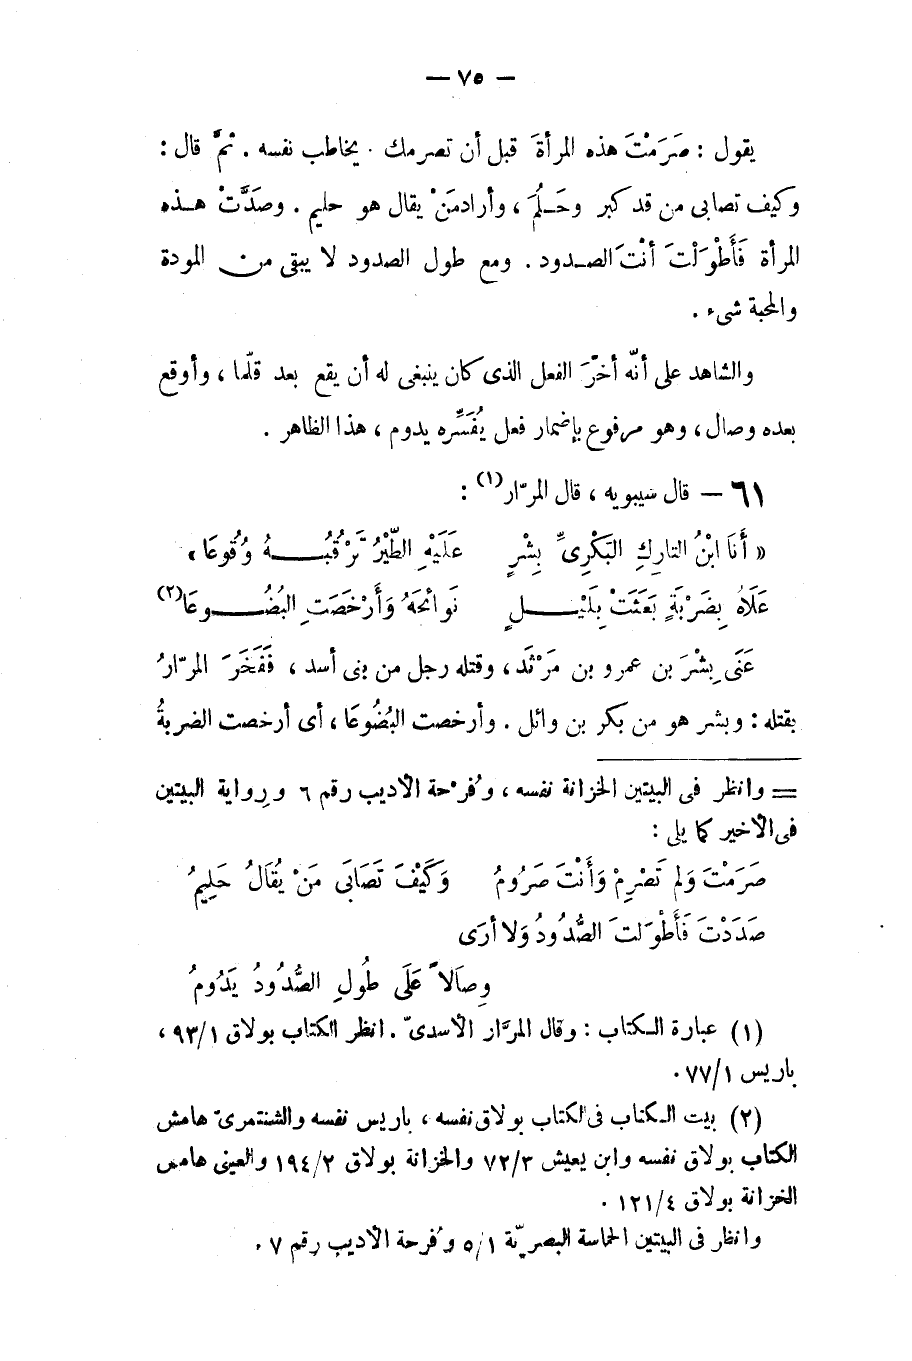 — ٧٥ —
يقول : صَرَمْتَ هذه المرأةَ قبل أن تصرمك . يخاطب نفسه . ثمَّ قال :
وكيف تصابى من قد كبر وحَـلُمَ ، وأراد مَنْ يقال هو حليم . وصَدَّتْ هـذه
المرأة فَأَطْوَلْتَ أنْتَ الصـدود . ومع طول الصدود لا يبقى من المودة
والمحبة شىء .
والشاهد على أنّه أخّرَ الفعل الذى كان ينبغى له أن يقع بعد قلّما ، وأوقع
بعده وصال ، وهو مرفوع بإضمار فعل يُفَسِّره يدوم ، هذا الظاهر .
٦١ — قال سيبويه ، قال المرّار(١) :
« أَنَا ابْنُ التارِكِ البَكْرِىِّ بِشْرٍ عَلَيْهِ الطَّيْرُ تَرْقُبُـــهُ وُقُوعَا »
عَلَاهُ بِضَرْبَةٍ بَعَثَتْ بِلَيْـــلٍ نَوائحَهُ وَأَرْخَصَتِ البُضُـــوعَا(٢)
عَنَى بِشْرَ بن عمرو بن مَرْثَد ، وقتله رجل من بنى أسد ، فَفَخَرَ المرّارُ
بقتله : وبشر هو من بكر بن وائل . وأرخصت البُضُوعَا ، أى أرخصت الضربةُ
= وانظر فى البيتين الخزانة نفسه ، وفُرحة الأديب رقم ٦ ورواية البيتين
فى الأخير كما يلى :
صَرَمْتَ وَلم تَصْرِمْ وَأَنْتَ صَرُومُ وَكَيْفَ تَصَابَى مَنْ يُقَالُ حَلِيمُ
صَدَدْتَ فَأَطْوَلتَ الصُّدُودُ وَلا أرَى
وِصَالاً عَلَى طُولِ الصُّدُودُ يَدُومُ
(١) عبارة الـكتاب : وقال المرَّار الأسدىّ . انظر الكتاب بولاق ٩٣/١ ،
باريس ٧٧/١ .
(٢) بيت الـكتاب فى الكتاب بولاق نفسه ، باريس نفسه والشنتمرىّ هامش
الكتاب بولاق نفسه وابن يعيش ٧٢/٣ والخزانة بولاق ١٩٤/٢ والعينى هامش
الخزانة بولاق ١٢١/٤ .
وانظر فى البيتين الحماسة البصريّة ٥/١ وفُرحة الأديب رقم ٧ .